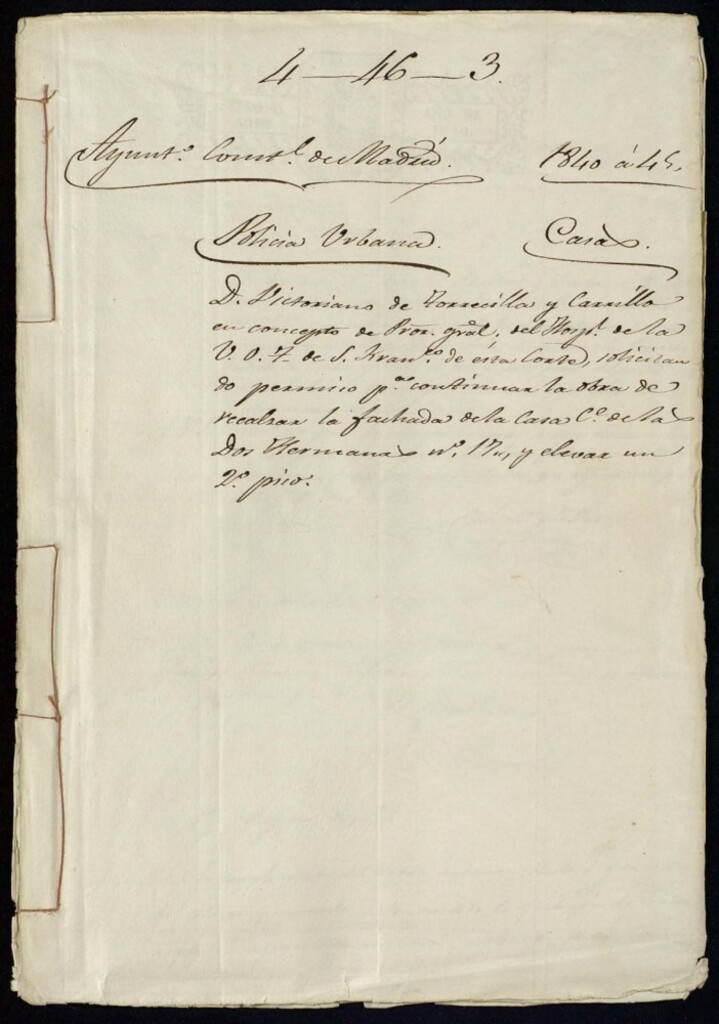 4 — 46 — 3.
Ayunt.º Const.l de Madrid. 1840 á 45.
Policia Urbana. Casas.
D. Victoriano de Torrecilla y Carrillo
en concepto de Pror. gral. del Hospl. de la
V. O. T. de S. Fran.co de esta Corte, solicitan
do permiso p.a continuar la obra de
recalzar la fachada de la Casa C.e de las
Dos Hermanas n.º 17, y elevar un
2.º piso.